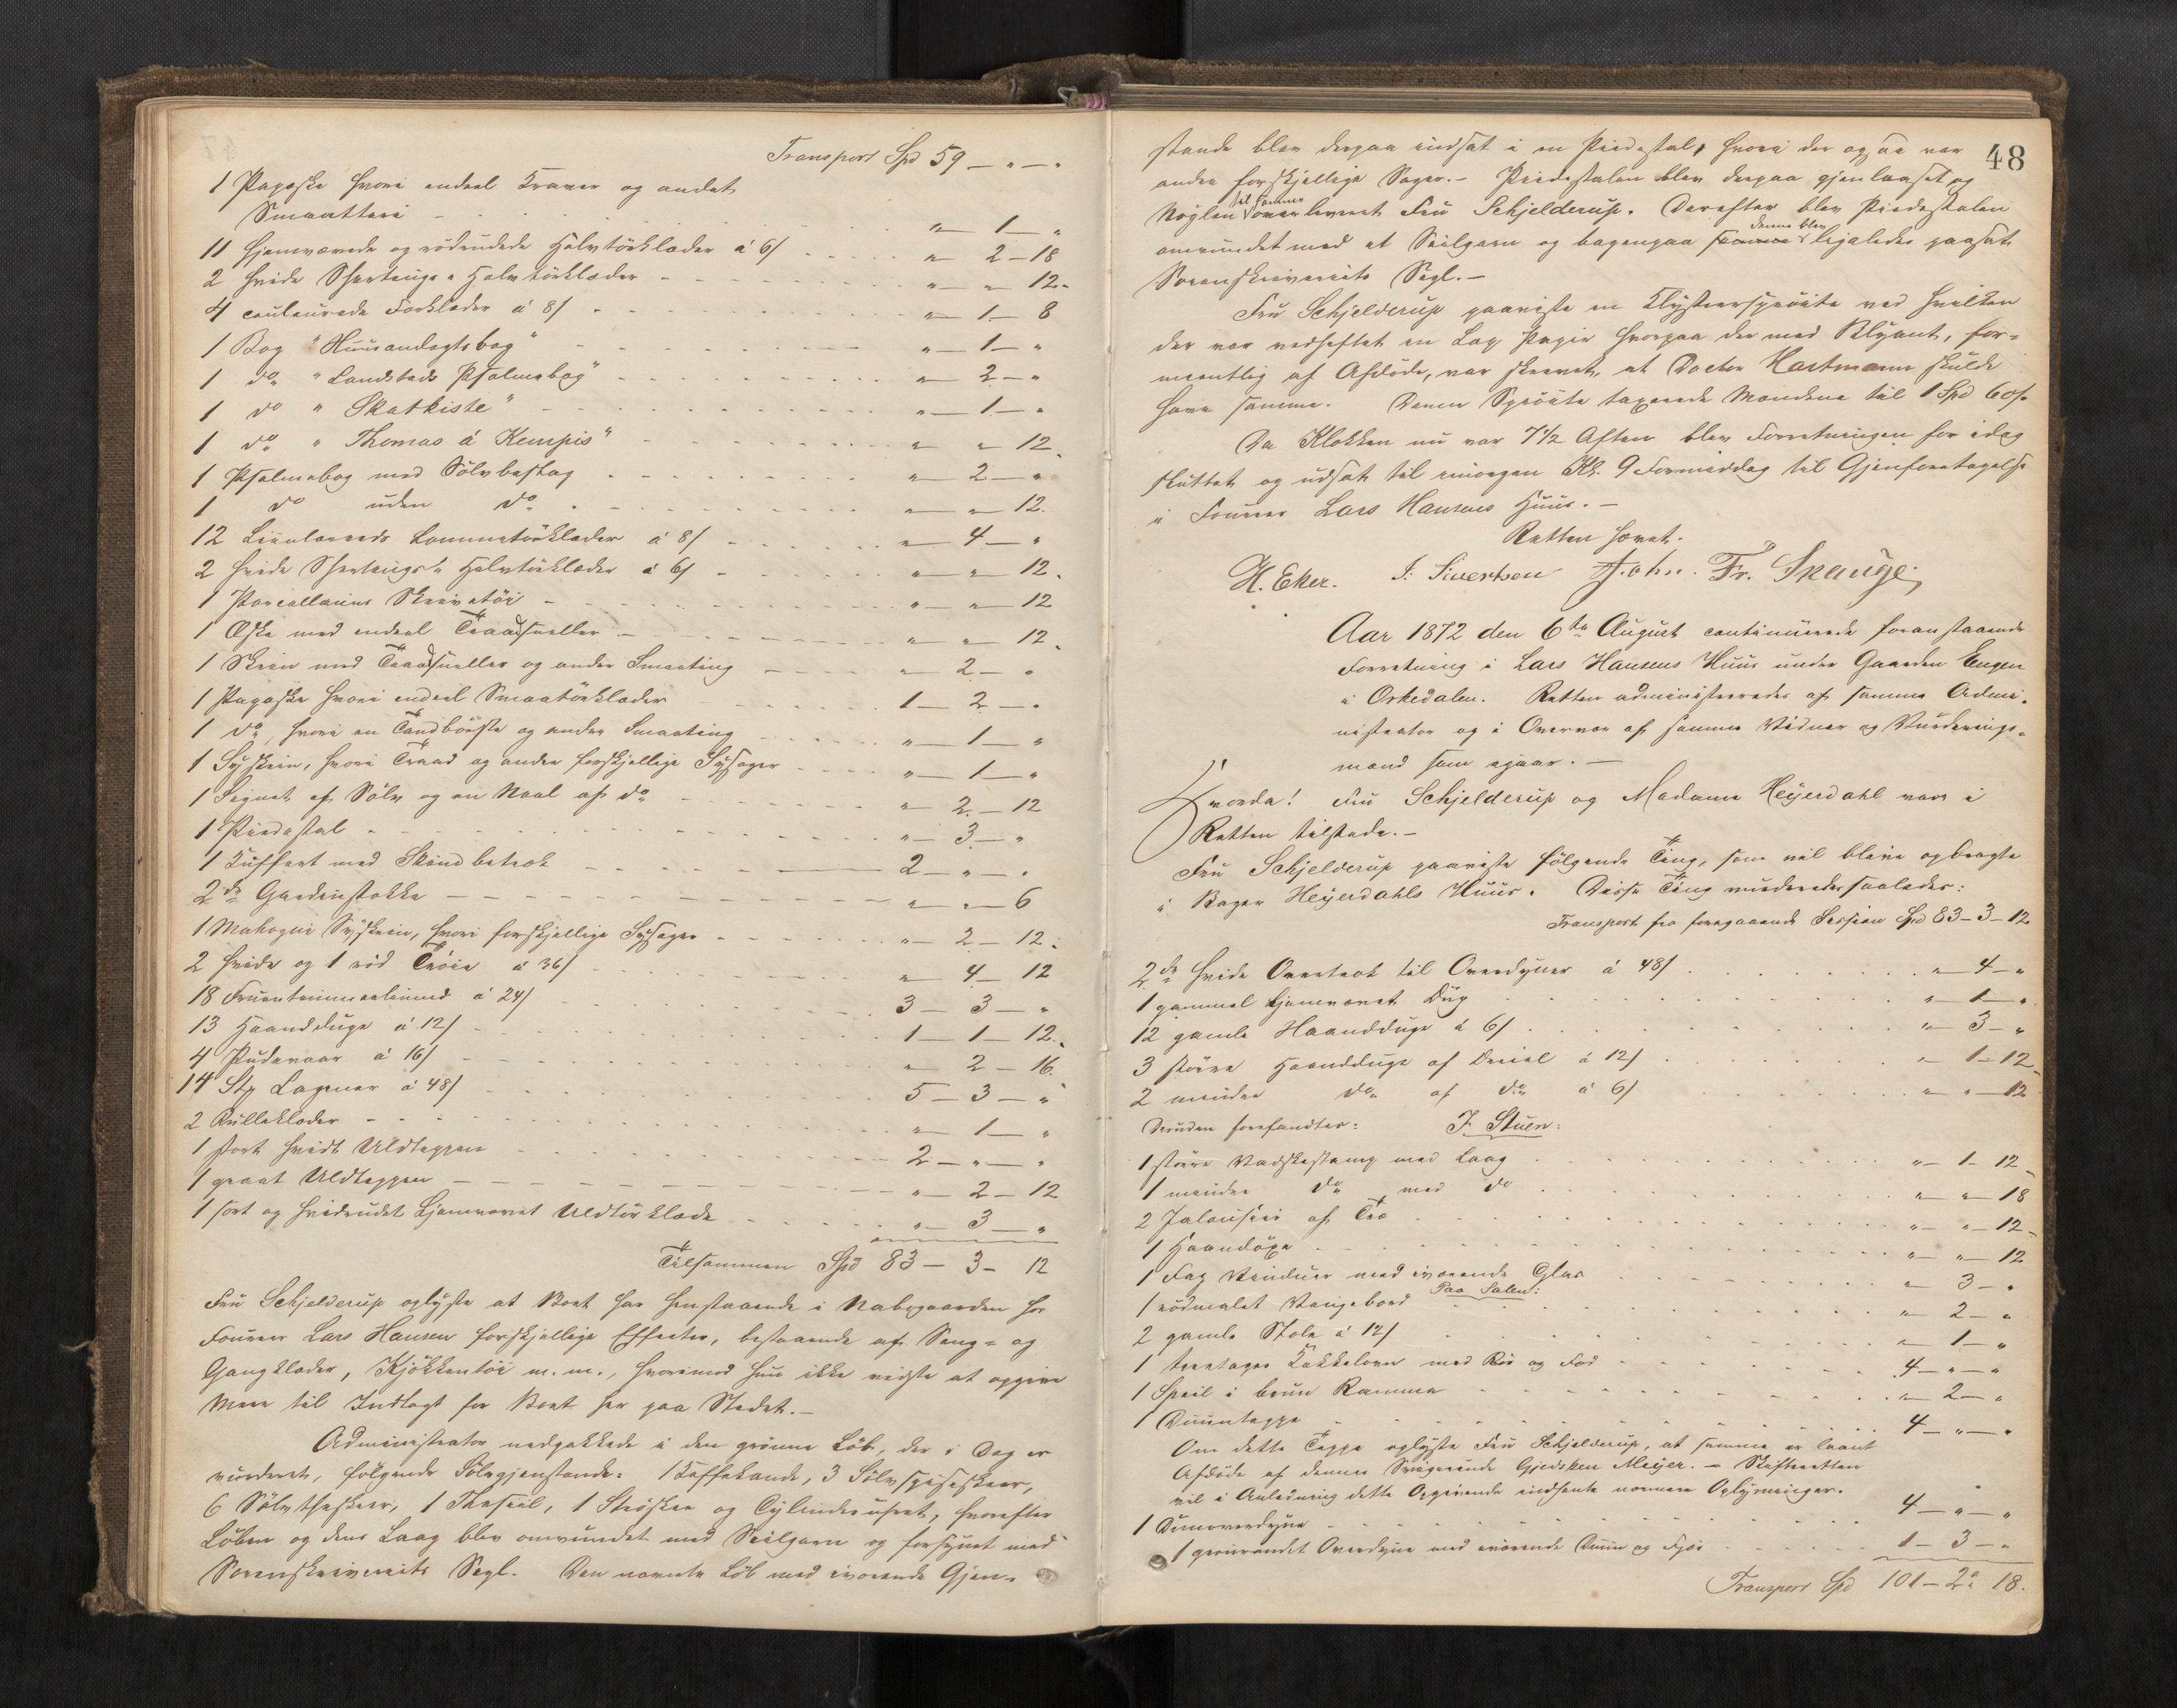 Transport Spd 59 — " — "
1 Papæske hvori endeel Kraver og andet
Smaatteri - " — 1 — "
11 hjemvævede og rödrudede Halvtörklæder á 6/ " — 2 — 18
2 hvide Shertings Halvtörklæder - " — " — 12.
4 couleurede Forklæder á 8/ - " — 1 — 8
1 Bog "Huusandagtsbog" - " — 1 — "
1 do "Landstads Psalmebog" - " — 2 — "
1 do "Skatkiste" - " — 1 — "
1 do "Thomas á Kempis" - " — " — 12.
1 Psalmebog med Sölvbeslag - " — 2 — "
1 do uden do - " — " — 12.
12 Liinlærreds Lommetörklæder á 8/ - " — 4 — "
2 hvide Shertings Halvtörklæder á 6/ - " — " — 12.
1 Porcellains Skrivetöi - " — " — 12
1 Æske med endeel Traadsneller - " — " — 12.
1 Skrin med Traadsneller og andre Smaating - " — 2 — "
1 Papæske hvori endeel Smaatörklæder 1 — 2 — "
1 do, hvori en Tandbörste og andre Smaating " — 1 — "
1 Syskrin, hvori Traad og andre forskjellige Sysager " — 1 — "
1 Signet af Sölv og en Naal af do - " — 2 — 12
1 Piedestal - " — 3 — "
1 Kuffert med Skindbetræk - 2 — " — "
2de Gardinstokke - " — " — 6
1 Mahogni Syskrin, hvori forskjellige Sysager - " — 2 — 12.
2 hvide og 1 röd Tröie á 36/ - " — 4 — 12
18 Fruentimmerlinned á 24/ 3 — 3 — "
13 Haandduge á 12/ - 1 — 1 — 12.
4 Pudevaar á 16/ - " — 2 — 16.
14 Stk Lagener á 48/ 5 — 3 — "
2 Rulleklæder - " — 1 — "
1 stort hvidt Uldteppen 2 — " — "
1 graat Uldteppen - " — 2 — 12
1 sort og hvidrudet hjemvævet Uldtörklæde " — 3 — "
Tilsammen Spd 83 — 3 — 12
Fru Schjelderup oplyste at Boet har henstaaende i Nabogaarden hos
Fourer Lars Hansen forskjellige Effecter, bestaaende af Seng- og
Gangklæder, Kjökkentöi m. m., hvorimod hun ikke vidste at opgive
mere til Indtægt for Boet her paa Stedet. —
Administrator nedpakkede i den grönne Löb, der i Dag er
vurderet, fölgende Sölvgjenstande: 1 Kaffekande, 3 Sölvspiseskeer,
6 Sölvtheskeer, 1 Thesiil, 1 Ströske og Cylinderuhret, hvorefter
Löben og dens Laag blev omvundet med Seilgarn og forsynet med
Sorenskriveriets Segl. Den nævnte Löb med iværende Gjen-
48
stande blev derpaa indsat i en Piedestal, hvori der ogsaa var
andre forskjellige Sager. — Piedestalen blev derpaa gjenlaaset og
Nöglen til samme overleveret Fru Schjelderup. Derefter blev Piedestalen
omvundet med et Seilgarn og bagenpaa denne blev ligeledes paasat
Sorenskriveriets Segl. —
Fru Schjelderup paaviste en Klysteerspröite ved hvilken
der var vedheftet en Lap Papir hvorpaa der med Blyant, for-
mentlig af Afdöde, var skrevet, at Doctor Hartmann skulde
have samme. Denne Spröite taxerede Mændene til 1 Spd 60/.
Da Klokken nu var 7 1/2 Aften blev Forretningen for idag
sluttet og udsat til imorgen Kl. 9 Formiddag til Gjenforetagelse
i Fourer Lars Hansens Huus. —
Retten hævet.
H. Eker. I. Sivertsen John. Fr. Skauge,
Aar 1872 den 6te August continuerede foranstaaende
Forretning i Lars Hansens Huus under Gaarden Evgen
i Orkedalen. Retten administreredes af samme Admi-
nistrator og i Overvær af samme Vidner og Vurderings-
mænd som igaar. —
Hvorda! Fru Schjelderup og Madame Heyerdahl vare i
Retten tilstede. —
Fru Schjelderup paaviste fölgende Ting, som vil blive opbragte
i Bager Heyerdahls Huus. Disse Ting vurderedes saaledes:
Transport fra foregaaende Session Spd 83 — 3 — 12
2de hvide Overtræk til Overdyner á 48/ " — 4 — "
1 gammel hjemvævet Dug " — 1 — "
12 gamle Haandduge á 6/ " — 3 — "
3 större Haandduge af Dreiel á 12/ " — 1 — 12
2 mindre do af do á 6/ " — " — 12
Desuden forefandtes: I Stuen:
1 större Vadskestamp med Laag " — 1 — 12
1 mindre do med do " — " — 18
2 Jalousier af Træ " — " — 12
1 Haandöxe " — " — 12
1 Fag Vinduer med iværende Glas " — 3 — "
Paa Salen:
1 rödmalet Vangebord " — 2 — "
2 gamle Stole á 12/ " — 1 — "
1 treetages Kakkelovn med Rör og Fod 4 — " — "
1 Speil i bruun Ramme " — 2 — "
1 Duunteppe 4 — " — "
Om dette Teppe oplyste Fru Schjelderup, at samme er laant
Afdöde af dennes Svigerinde Gjedsken Meyer. — Skifteretten
vil i Anledning dette Opgivende indhente nærmere Oplysninger.
1 Duunoverdyne 4 — " — "
1 graarandet Overdyne med iværende Duun og Fjær 1 — 3 — "
Transport Spd 101 — 2 — 18.